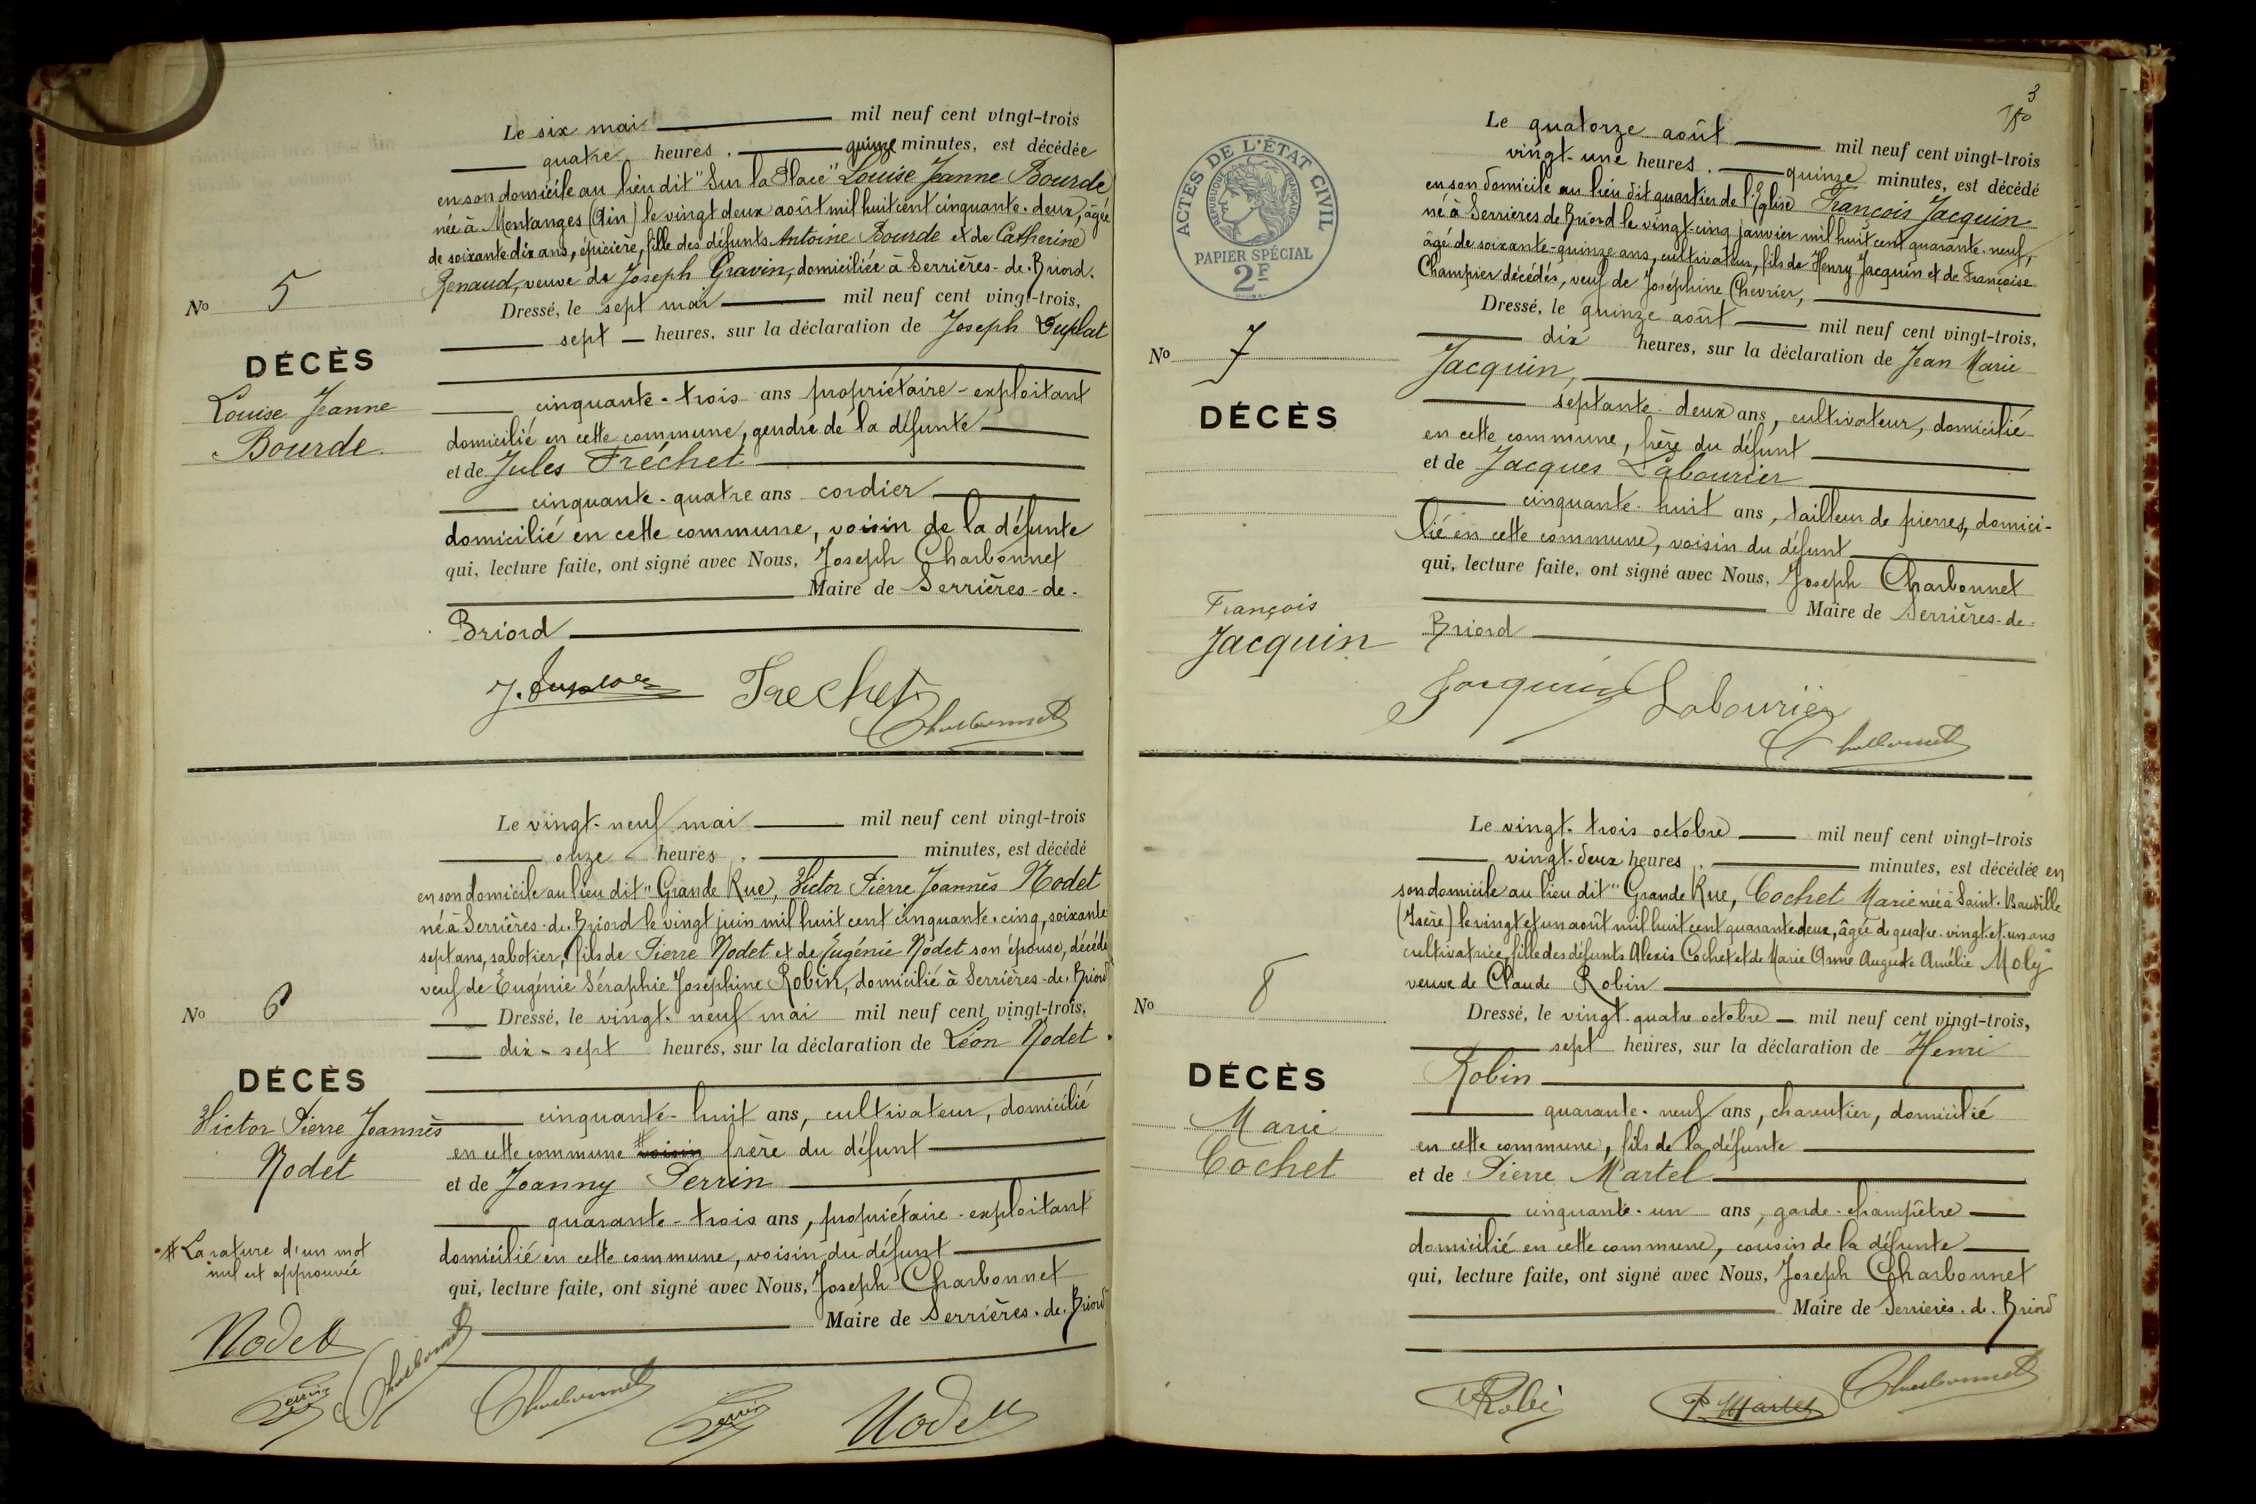 Le six mai mil neuf cent vingt-trois
quatre heures. quinze minutes, est décédée
en son domicile au lieu dit "Sur la Place" Louise Jeanne Bourde
née à Montanges (Ain) le vingt deux août mil huit cent cinquante-deux, âgée
de soixante-dix ans, épicière, fille des défunts Antoine Bourde et de Catherine
Renaud, veuve de Joseph Gravin, domiciliée à Serrières-de-Briord.
No 5
Dressé, le sept mai mil neuf cent vingt-trois,
sept heures, sur la déclaration de Joseph Duplat
DÉCÈS
Louise Jeanne
Bourde
cinquante-trois ans propriétaire-exploitant
domicilié en cette commune, gendre de la défunte
et de Jules Fréchet
cinquante-quatre ans cordier
domicilié en cette commune, voisin de la défunte
qui, lecture faite, ont signé avec Nous, Joseph Charbonnet
Maire de Serrières-de-
Briord
J. Duplat Frechet
Charbonnet
Le vingt-neuf mai mil neuf cent vingt-trois
onze heures. minutes, est décédé
en son domicile au lieu dit "Grande Rue, Victor Pierre Joannès Nodet
né à Serrières-de-Briord le vingt juin mil huit cent cinquante-cinq, soixante
sept ans, sabotier, fils de Pierre Nodet et de Eugénie Nodet son épouse, décédés
veuf de Eugénie Séraphie Joséphine Robin, domicilié à Serrières-de-Briord
No 6
Dressé, le vingt-neuf mai mil neuf cent vingt-trois,
dix-sept heures, sur la déclaration de Léon Nodet.
DÉCÈS
Victor Pierre Joannès
Nodet
cinquante-huit ans, cultivateur, domicilié
en cette commune # voisin frère du défunt
et de Joanny Perrin
quarante-trois ans, propriétaire-exploitant
domicilié en cette commune, voisin du défunt
# La rature d'un mot
nul est approuvée
qui, lecture faite, ont signé avec Nous, Joseph Charbonnet
Maire de Serrières-de-Briord
Nodet
Perrin Charbonnet
Charbonnet Perrin Nodet
3
ACTES DE L'ÉTAT CIVIL
RÉPUBLIQUE FRANÇAISE
PAPIER SPÉCIAL
2F
Le quatorze août mil neuf cent vingt-trois
vingt-une heures. quinze minutes, est décédé
en son domicile au lieu dit quartier de l'Eglise François Jacquin
né à Serrières de Briord le vingt-cinq janvier mil huit cent quarante-neuf,
âgé de soixante-quinze ans, cultivateur, fils de Henry Jacquin et de Françoise
Champier décédés, veuf de Joséphine Chevrier,
Dressé, le quinze août mil neuf cent vingt-trois,
No 7
dix heures, sur la déclaration de Jean Marie
Jacquin,
DÉCÈS
septante-deux ans, cultivateur, domicilié
en cette commune, frère du défunt
et de Jacques Labourier
cinquante-huit ans, tailleur de pierres, domici-
lié en cette commune, voisin du défunt
qui, lecture faite, ont signé avec Nous, Joseph Charbonnet
Maire de Serrières-de-
François
Jacquin
Briord
Jacquin Labourier
Charbonnet
Le vingt-trois octobre mil neuf cent vingt-trois
vingt-deux heures. minutes, est décédée en
son domicile au lieu dit "Grande Rue, Cochet Marie née à Saint-Baudille
(Isère) le vingt et un août mil huit cent quarante deux, âgée de quatre-vingt-et-un ans
cultivatrice, fille des défunts Alexis Cochet et de Marie Anne Auguste Amélie Moly
veuve de Claude Robin
No 8
Dressé, le vingt-quatre octobre mil neuf cent vingt-trois,
sept heures, sur la déclaration de Henri
Robin
DÉCÈS
Marie
Cochet
quarante-neuf ans, charcutier, domicilié
en cette commune, fils de la défunte
et de Pierre Martel
cinquante-un ans, garde-champêtre
domicilié en cette commune, cousin de la défunte
qui, lecture faite, ont signé avec Nous, Joseph Charbonnet
Maire de Serrières-de-Briord
P Martel Charbonnet